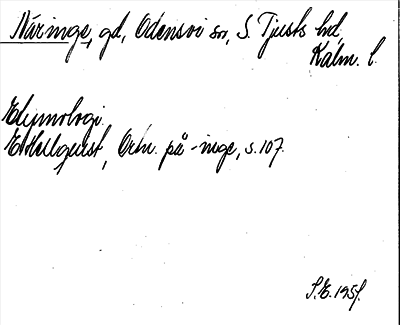 Näringe, gd, Odensvi sn, S. Tjusts hd,
Kalm. l.
Etymologi.
E Hellquist, Ortn. på -inge, s. 107.
S.E. 1951.